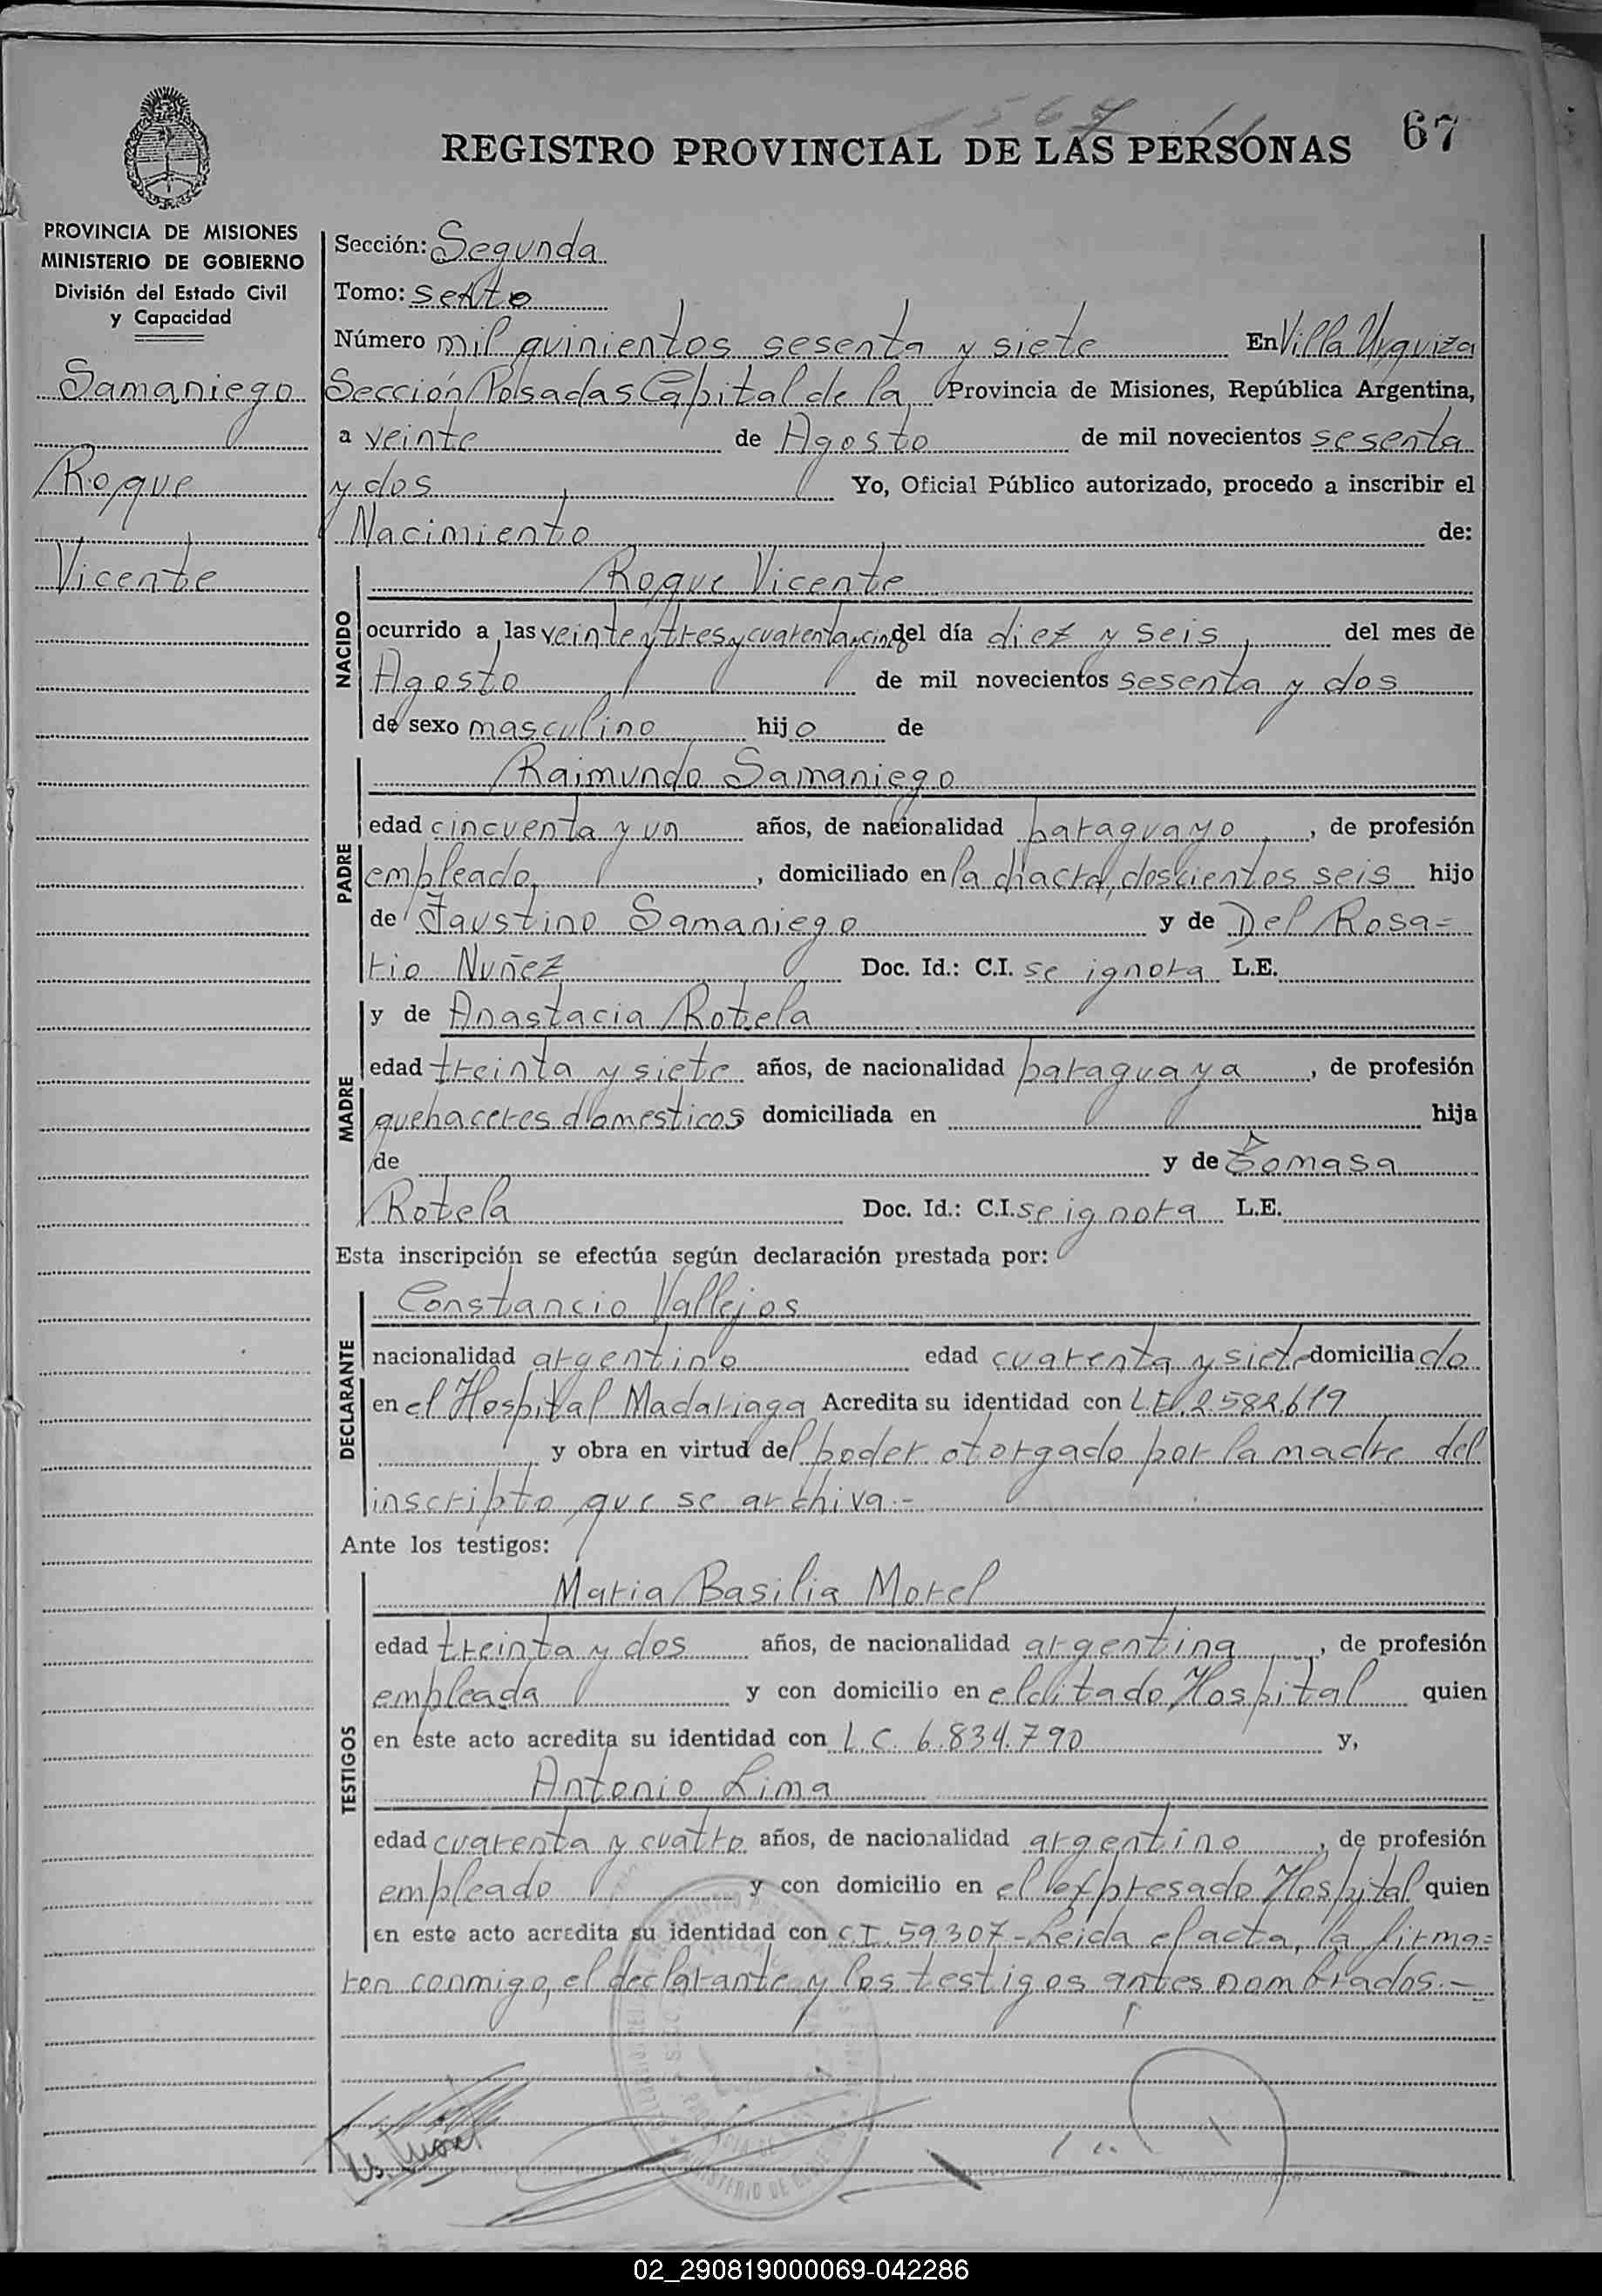 67
REGISTRO PROVINCIAL DE LAS PERSONAS
PROVINCIA DE MISIONES
MINISTERIO DE GOBIERNO
División del Estado Civil
y Capacidad
Samaniego
Roque
Vicente
Sección: Segunda
Tomo: sexto
Número mil quinientos sesenta y siete En Villa Urquiza
Sección Posadas Capital de la Provincia de Misiones, República Argentina,
a veinte de Agosto de mil novecientos sesenta
y dos Yo, Oficial Público autorizado, procedo a inscribir el
Nacimiento de:
NACIDO
Roque Vicente
ocurrido a las veinte y tres y cuarenta y cinco del día diez y seis del mes de
Agosto de mil novecientos sesenta y dos
de sexo masculino hijo de
PADRE
Raimundo Samaniego
edad cincuenta y un años, de nacionalidad paraguayo, de profesión
empleado, domiciliado en la chacra, doscientos seis hijo
de Faustino Samaniego y de Del Rosa=
rio Nuñez Doc. Id.: C.I. se ignora L.E.
MADRE
y de Anastacia Rotela
edad treinta y siete años, de nacionalidad paraguaya, de profesión
quehaceres domesticos domiciliada en hija
de y de Tomasa
Rotela Doc. Id.: C.I. se ignora L.E.
Esta inscripción se efectúa según declaración prestada por:
DECLARANTE
Constancio Vallejos
nacionalidad argentino edad cuarenta y siete domiciliado
en el Hospital Madariaga Acredita su identidad con L.E. 2.582.619
y obra en virtud del poder otorgado por la madre del
inscripto que se archiva.-
Ante los testigos:
TESTIGOS
Maria Basilia Morel
edad treinta y dos años, de nacionalidad argentina, de profesión
empleada y con domicilio en el citado Hospital quien
en este acto acredita su identidad con L.C. 6.834.790 y,
Antonio Lima
edad cuarenta y cuatro años, de nacionalidad argentino, de profesión
empleado y con domicilio en el expresado Hospital quien
en este acto acredita su identidad con C.I. 59.307-Leida el acta, la firma=
ron conmigo, el declarante y los testigos antes nombrados.-
02_290819000069-042286